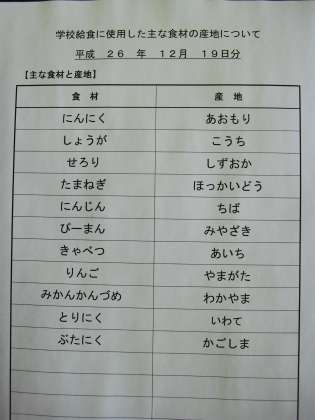 学校給食に使用した主な食材の産地について
平成 26 年 12月 19日分
【主な食材と産地】
食 材 産 地
にんにく あおもり
しょうが こうち
せろり しずおか
たまねぎ ほっかいどう
にんじん ちば
ぴーまん みやざき
きゃべつ あいち
りんご やまがた
みかんかんづめ わかやま
とりにく いわて
ぶたにく かごしま